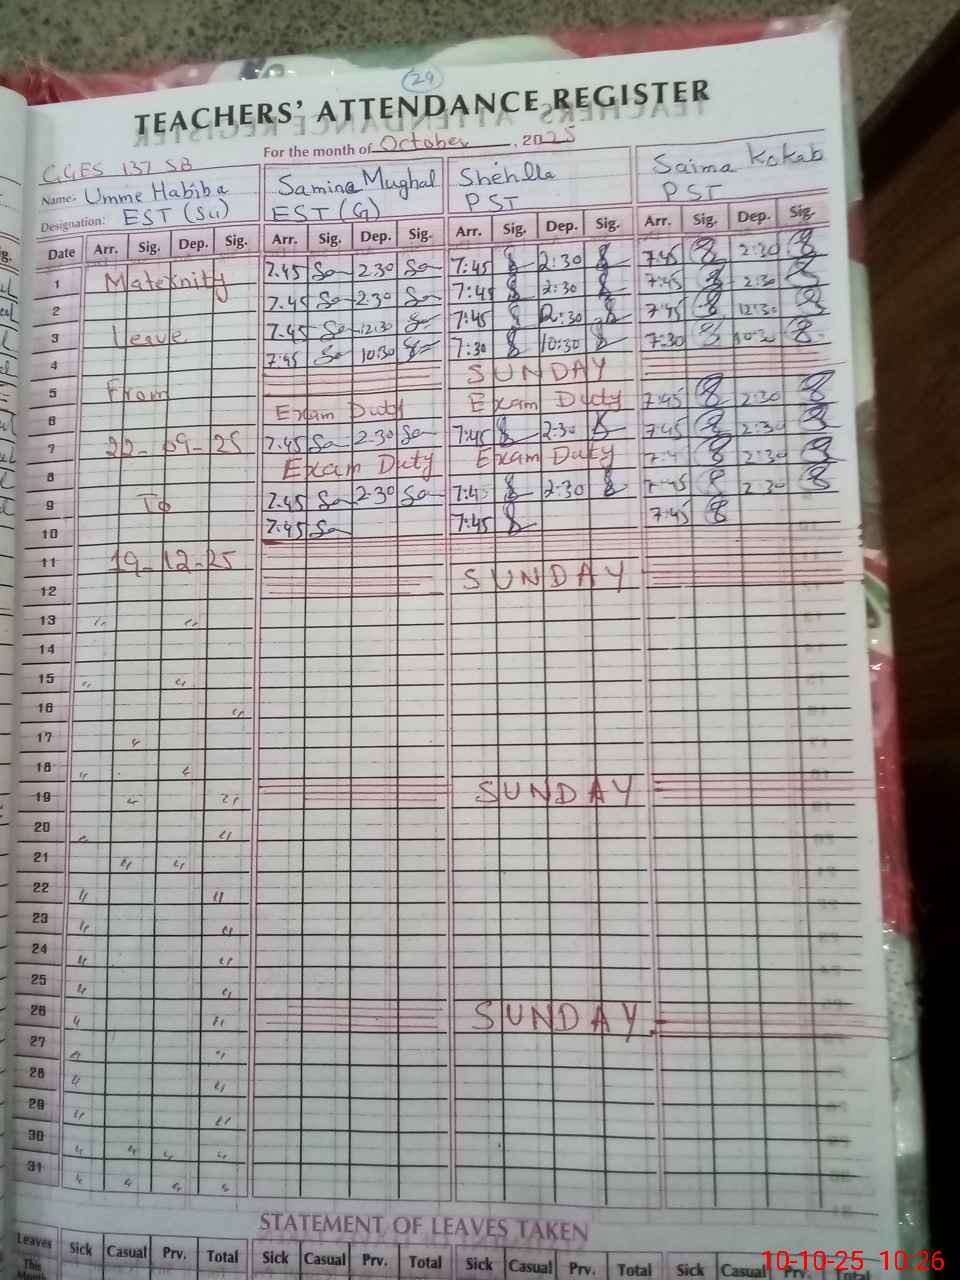 29
TEACHERS' ATTENDANCE REGISTER
For the month of October, 2025
GGES 137 SB
Name. Umme Habiba Samina Mughal Shehlla Saima Kokab
Designation: EST (Su) EST (G) PST PST
Date Arr. Sig. Dep. Sig. Arr. Sig. Dep. Sig. Arr. Sig. Dep. Sig. Arr. Sig. Dep. Sig.
1 Maternity 7.45 Sa 2.30 Sa 7:45 2:30 7:45 2:30
2 7.45 Sa 2:30 Sa 7:45 2:30 7:45 2:30
3 Leave 7.45 Sa 12:30 7:45 12:30 7:45 12:30
4 7:45 Sa 10:30 7:30 10:30 7:30 10:30
5 From SUNDAY
6 Exam Duty Exam Duty 7:45 2:30
7 22-09-25 7.45 Sa 2:30 Sa 7:45 2:30 7:45 2:30
8 Exam Duty Exam Duty 2:30
9 To 7.45 Sa 2:30 Sa 2:30 7:45 2:30
10 7.45 Sa 7:45 7:45
11 19-12-25
12 SUNDAY
13 " "
14
15 " "
16 "
17 "
18 " "
19 " " SUNDAY
20 " "
21 " "
22 " "
23 " "
24 " "
25 " "
26 " " SUNDAY
27 " "
28 " "
29 " "
30 " " " "
31 " " " "
STATEMENT OF LEAVES TAKEN
Leaves Sick Casual Prv. Total Sick Casual Prv. Total Sick Casual Prv. Total Sick Casual Prv. Total
This
10-10-25 10:26